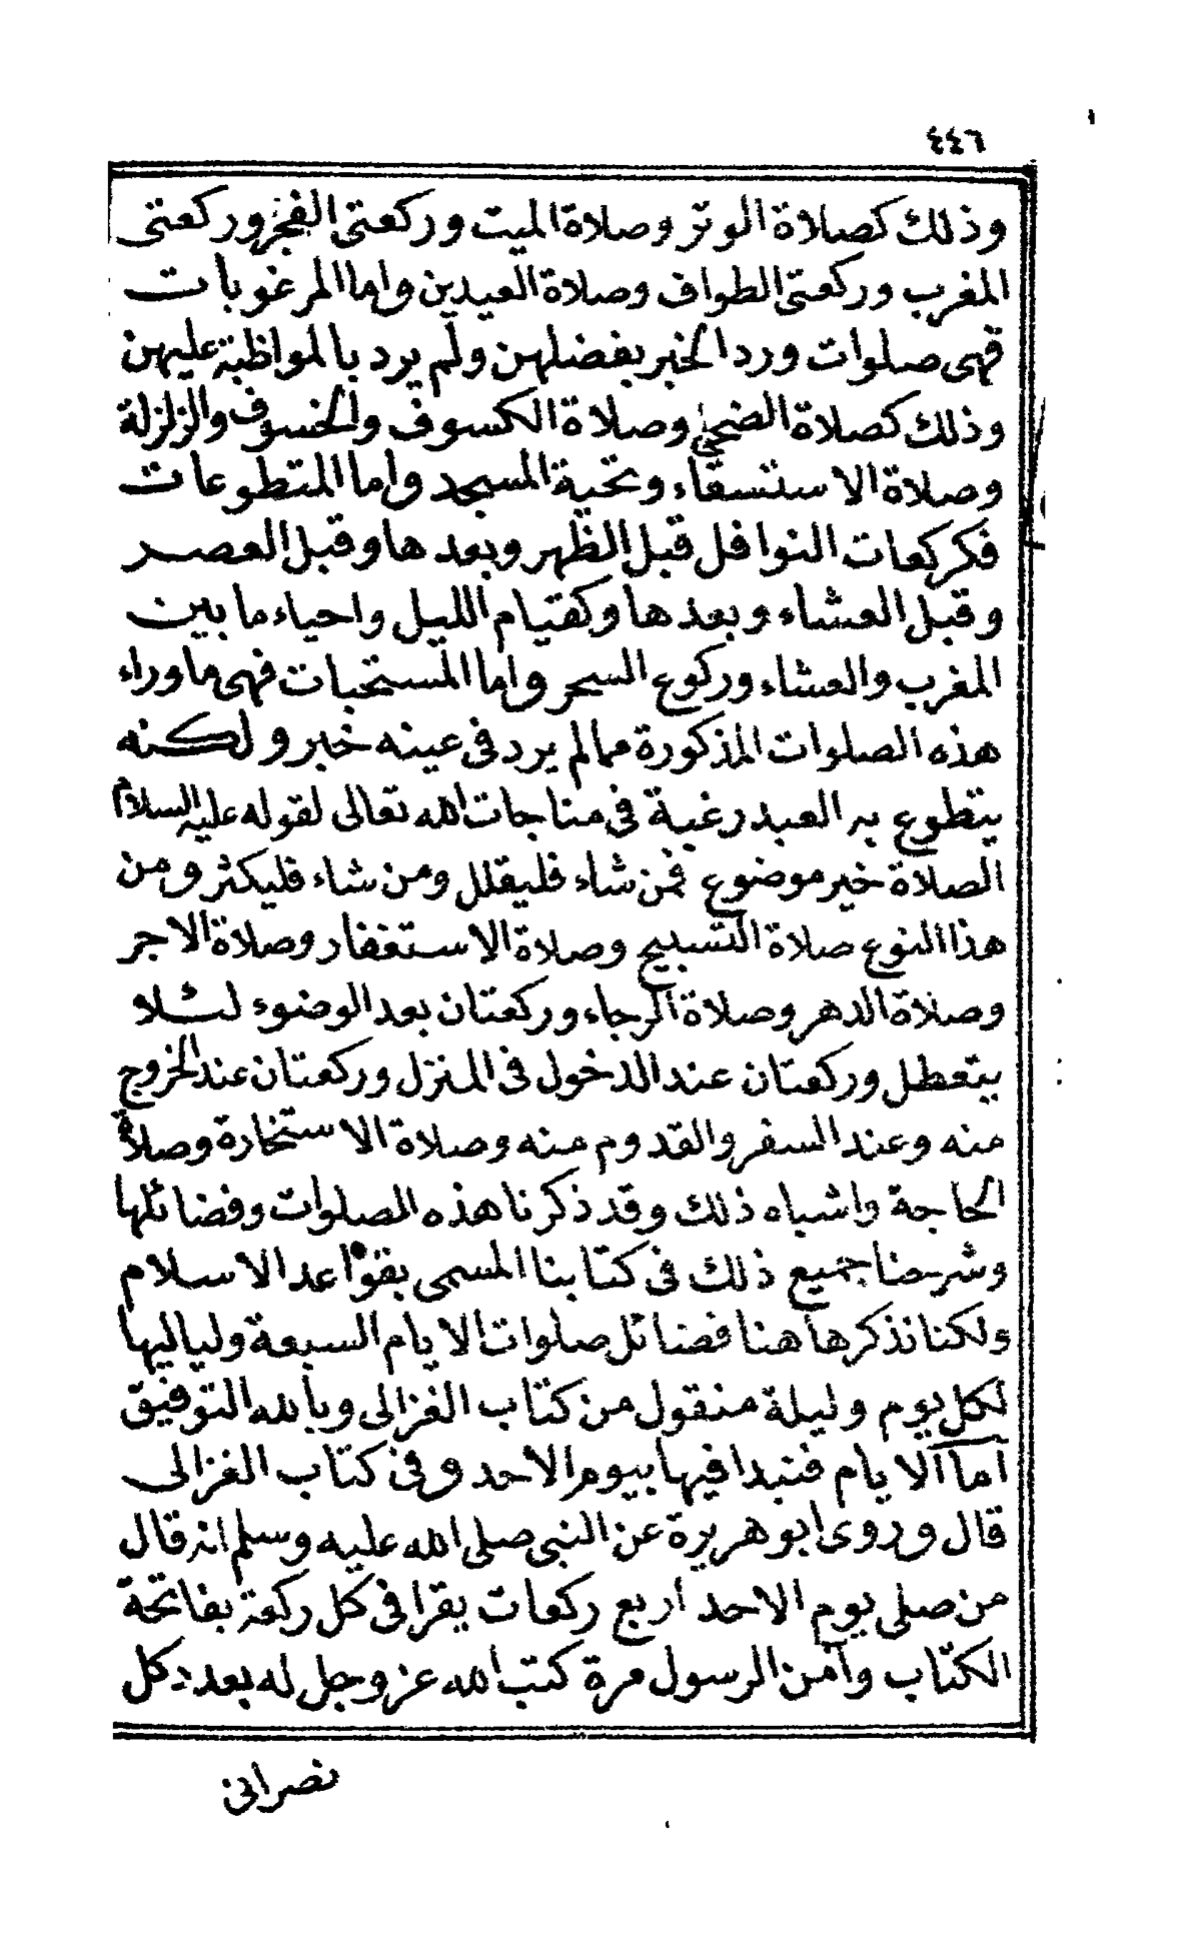 ٤٤٦
وذلك كصلاة الوتر وصلاة الميت وركعتى الفجر وركعتى
المغرب وركعتى الطواف وصلاة العيدين واما المرغوبات
فهى صلوات ورد الخبر بفضلهن ولم يرد بالمواظبة عليهن
وذلك كصلاة الضحى وصلاة الكسوف والخسوف والزلزلة
وصلاة الاستسقاء وتحية المسجد واما المتطوعات
فكركعات النوافل قبل الظهر وبعدها وقبل العصر
وقبل العشاء وبعدها وكقيام الليل واحياء ما بين
المغرب والعشاء وركوع السحر واما المستحبات فهى ما وراء
هذه الصلوات المذكورة مما لم يرد فى عينه خبر ولكنه
يتطوع به العبد رغبة فى مناجات الله تعالى لقوله عليه السلام
الصلاة خير موضوع فمن شاء فليقلل ومن شاء فليكثر ومن
هذا النوع صلاة التسبيح وصلاة الاستغفار وصلاة الاجر
وصلاة الدهر وصلاة الرجاء وركعتان بعد الوضوء لئلا
يتعطل وركعتان عند الدخول فى المنزل وركعتان عند الخروج
منه وعند السفر والقدوم منه وصلاة الاستخارة وصلاة
الحاجة واشباه ذلك وقد ذكرنا هذه الصلوات وفضائلها
وشرحنا جميع ذلك فى كتابنا المسمى بقواعد الاسلام
ولكنا نذكر هاهنا فضائل صلوات الايام السبعة ولياليها
لكل يوم وليلة منقول من كتاب الغزالى وبالله التوفيق
اما الايام فنبدا فيها بيوم الاحد وفى كتاب الغزالى
قال وروى ابو هريرة عن النبى صلى الله عليه وسلم انه قال
من صلى يوم الاحد أربع ركعات يقرا فى كل ركعة بفاتحة
الكتاب وآمن الرسول مرة كتب الله عز وجل له بعدد كل
نصرانى